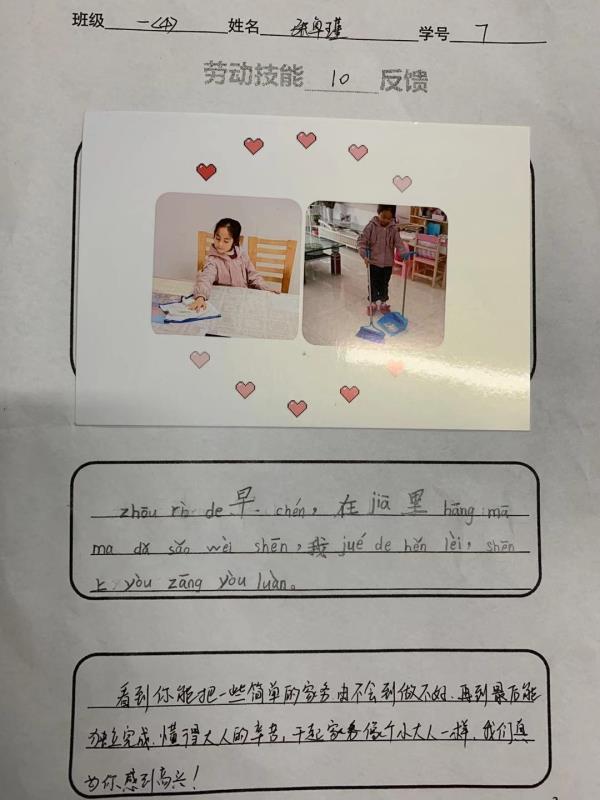 班级 一(4) 姓名 张卓瑾 学号 7
劳动技能 10 反馈
zhōu rì de 早 chén，在 jiā 里 bāng mā
ma dǎ sǎo wèi shēn，我 jué de hěn lèi，shēn
上 yòu zāng yòu luàn。
看到你能把一些简单的家务由不会到做不好，再到最后能
独立完成，懂得大人的辛苦，干起家务像个小大人一样，我们真
为你感到高兴！